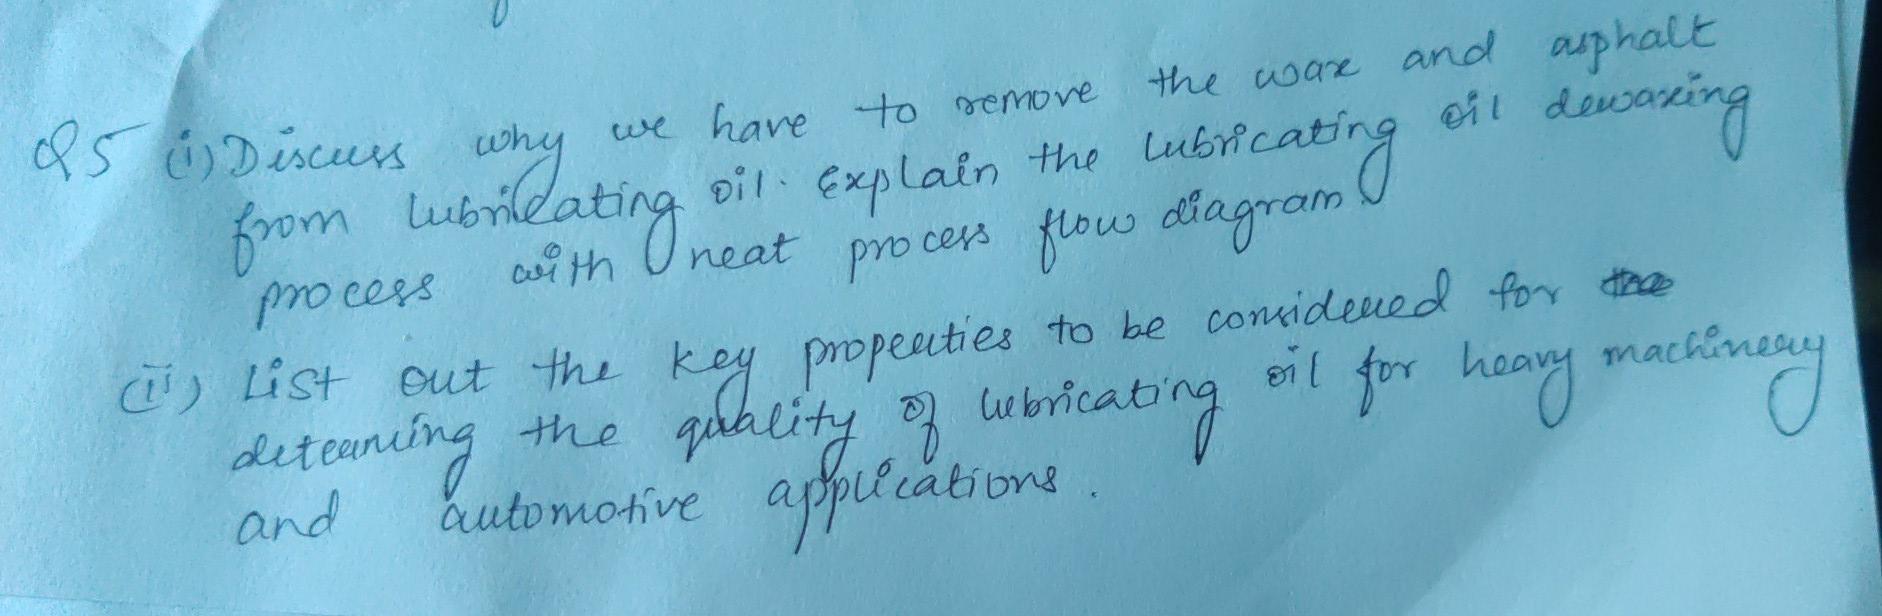 Q5 (i) Discuss why we have to remove the wax and asphalt
from lubricating oil. Explain the lubricating oil dewaxing
process with neat process flow diagram
(ii) List out the key properties to be considered for the
determing the quality of lubricating oil for heavy machinery
and automotive applications.